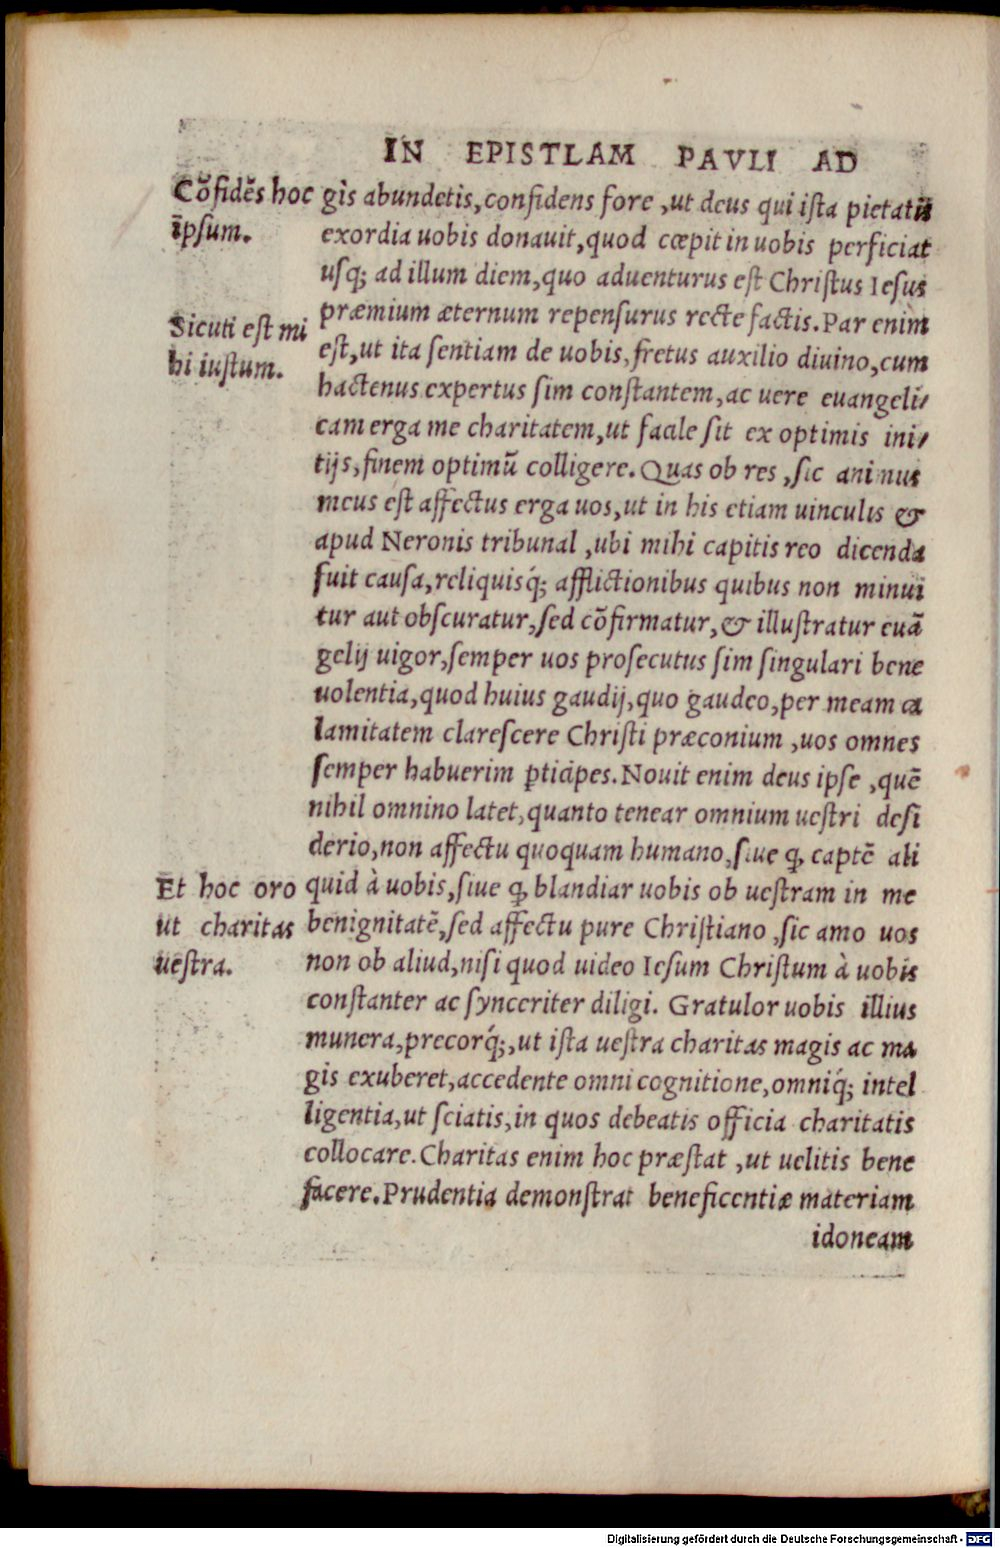 IN EPISTLAM PAVLI AD
Cõfidẽs hoc
ĩpsum.
Sicuti eſt mi
hi iuſtum.
Et hoc oro
ut charitas
ueſtra.
gis abundetis, confidens fore, ut deus qui iſta pietatis
exordia uobis donauit, quod cœpit in uobis perficiat
uſq; ad illum diem, quo aduenturus eſt Chriſtus Ieſus
præmium æternum repenſurus recte factis. Par enim
eſt, ut ita ſentiam de uobis, fretus auxilio diuino, cum
hactenus expertus ſim conſtantem, ac uere euangeli/
cam erga me charitatem, ut facile ſit ex optimis ini/
tijs, finem optimũ colligere. Quas ob res, ſic animus
meus eſt affectus erga uos, ut in his etiam uinculis &
apud Neronis tribunal, ubi mihi capitis reo dicenda
fuit cauſa, reliquisq́; afflictionibus quibus non minui
tur aut obſcuratur, ſed cõfirmatur, & illuſtratur euã
gelij uigor, ſemper uos proſecutus ſim ſingulari bene
uolentia, quod huius gaudij, quo gaudeo, per meam ca
lamitatem clareſcere Chriſti præconium, uos omnes
ſemper habuerim ꝑticipes. Nouit enim deus ipſe, quẽ
nihil omnino latet, quanto tenear omnium ueſtri deſi
derio, non affectu quoquam humano, ſiue ꝙ captẽ ali
quid à uobis, ſiue ꝙ blandiar uobis ob ueſtram in me
benignitatẽ, ſed affectu pure Chriſtiano, ſic amo uos
non ob aliud, niſi quod uideo Ieſum Chriſtum à uobis
conſtanter ac ſynceriter diligi. Gratulor uobis illius
munera, precorq́;, ut iſta ueſtra charitas magis ac ma
gis exuberet, accedente omni cognitione, omniq́; intel
ligentia, ut ſciatis, in quos debeatis officia charitatis
collocare. Charitas enim hoc præſtat, ut uelitis bene
facere. Prudentia demonſtrat beneficentiæ materiam
idoneam
Digitalisierung gefördert durch die Deutsche Forschungsgemeinschaft - DFG